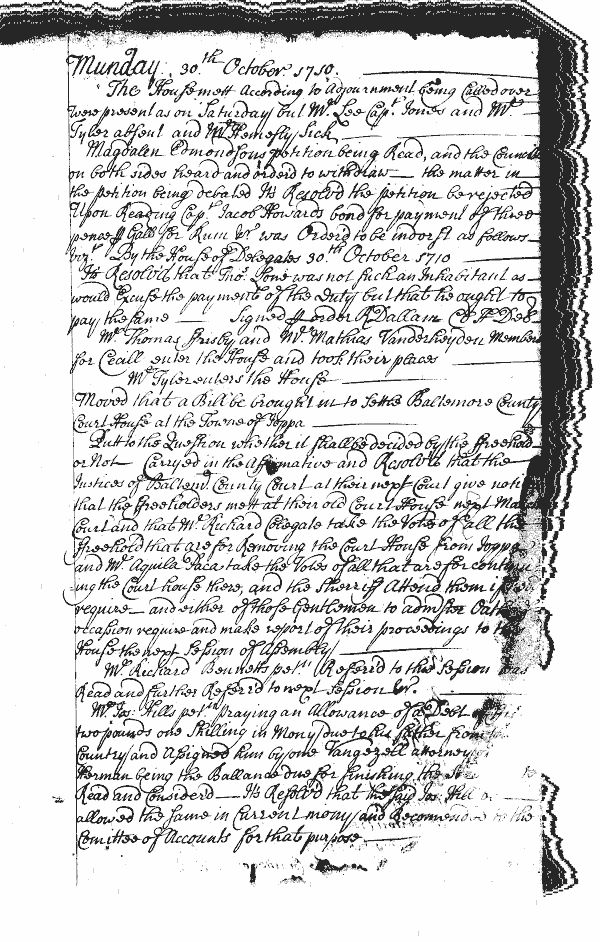 Munday 30.th October 1710.
The House mett According to Adjournment being Called over
were present as on Saturday but Mr. Lee Capt. Jones and Mr.
Tyler absent and Mr. Hemesly Sick
Magdalen Edmondsons petition being Read, and the Councill
on both sides heard and orderd to withdraw the matter in
the petition being debated Its Resolvd the petition be rejected
Upon Reading Capt. Jacob Howards bond for payment of three
pence p Gall for Rum &c. was Orderd to be indorst as follows
vizt. By the House of Delegates 30.th October 1710
Its Resolvd that Tho: Stone was not such an Inhabitant as
would Excuse the payment of the Duty but that he ought to
pay the same Signed p order R Dallam Cl H Del
Mr. Thomas Frisby and Mr. Mathias Vanderheyden Members
for Cecill enter the House and took their places
Mr. Tyler enters the House
Moved that a Bill be brought in to Settle Baltemore County
Court House at the Towne of Joppa
Putt to the Question whether it shall be decided by the freehold
or Not Carryed in the Affirmative and Resolvd that the
Justices of Baltem: County Court at their next Court give notice
that the freeholders mett at their old Court House next March
Court and that Mr. Richard Colegate take the Votes of all the
freehold that are for Removing the Court House from Joppa
and Mr. Aquila Paca take the Votes of all that are for continu
ing the Court house there, and the Sherriff Attend them if
require and either of those Gentlemen to admstor Oath
occassion require and make report of their proceedings to the
House the next Session of Assembly
Mr. Richard Bennetts petn. Referrd to this Session was
Read and further Referrd to next Session &c.
Mr. Jas: Hills petn praying an Allowance of a Debt of
two pounds one Shilling in Mony due to his father from
Country and Assigned him by one Vangezell attorney
Herman being the Ballance due for finishing the to
Read and Considerd Its Resolvd that the said Jas: Hill
allowed the same in Current mony and Recomended to the
Comittee of Accounts for that purpose